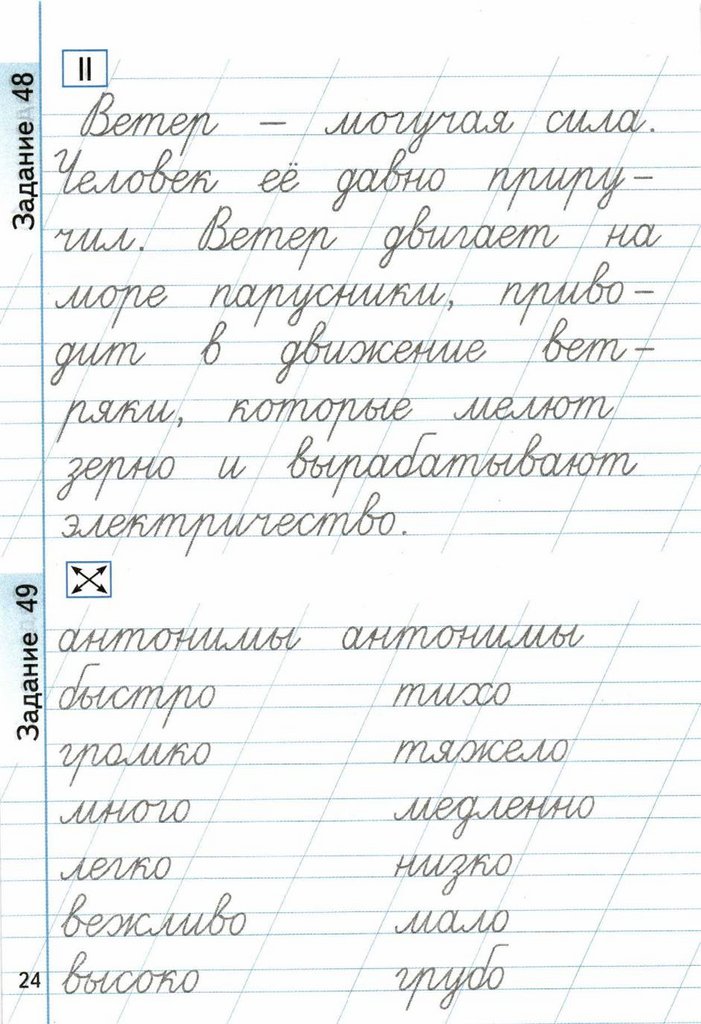 Задание 48
II
Ветер – могучая сила.
Человек её давно приру-
чил. Ветер двигает на
море парусники, приво-
дит в движение вет-
ряки, которые мелют
зерно и вырабатывают
электричество.
Задание 49
антонимы антонимы
быстро тихо
громко тяжело
много медленно
легко низко
вежливо мало
высоко грубо
24